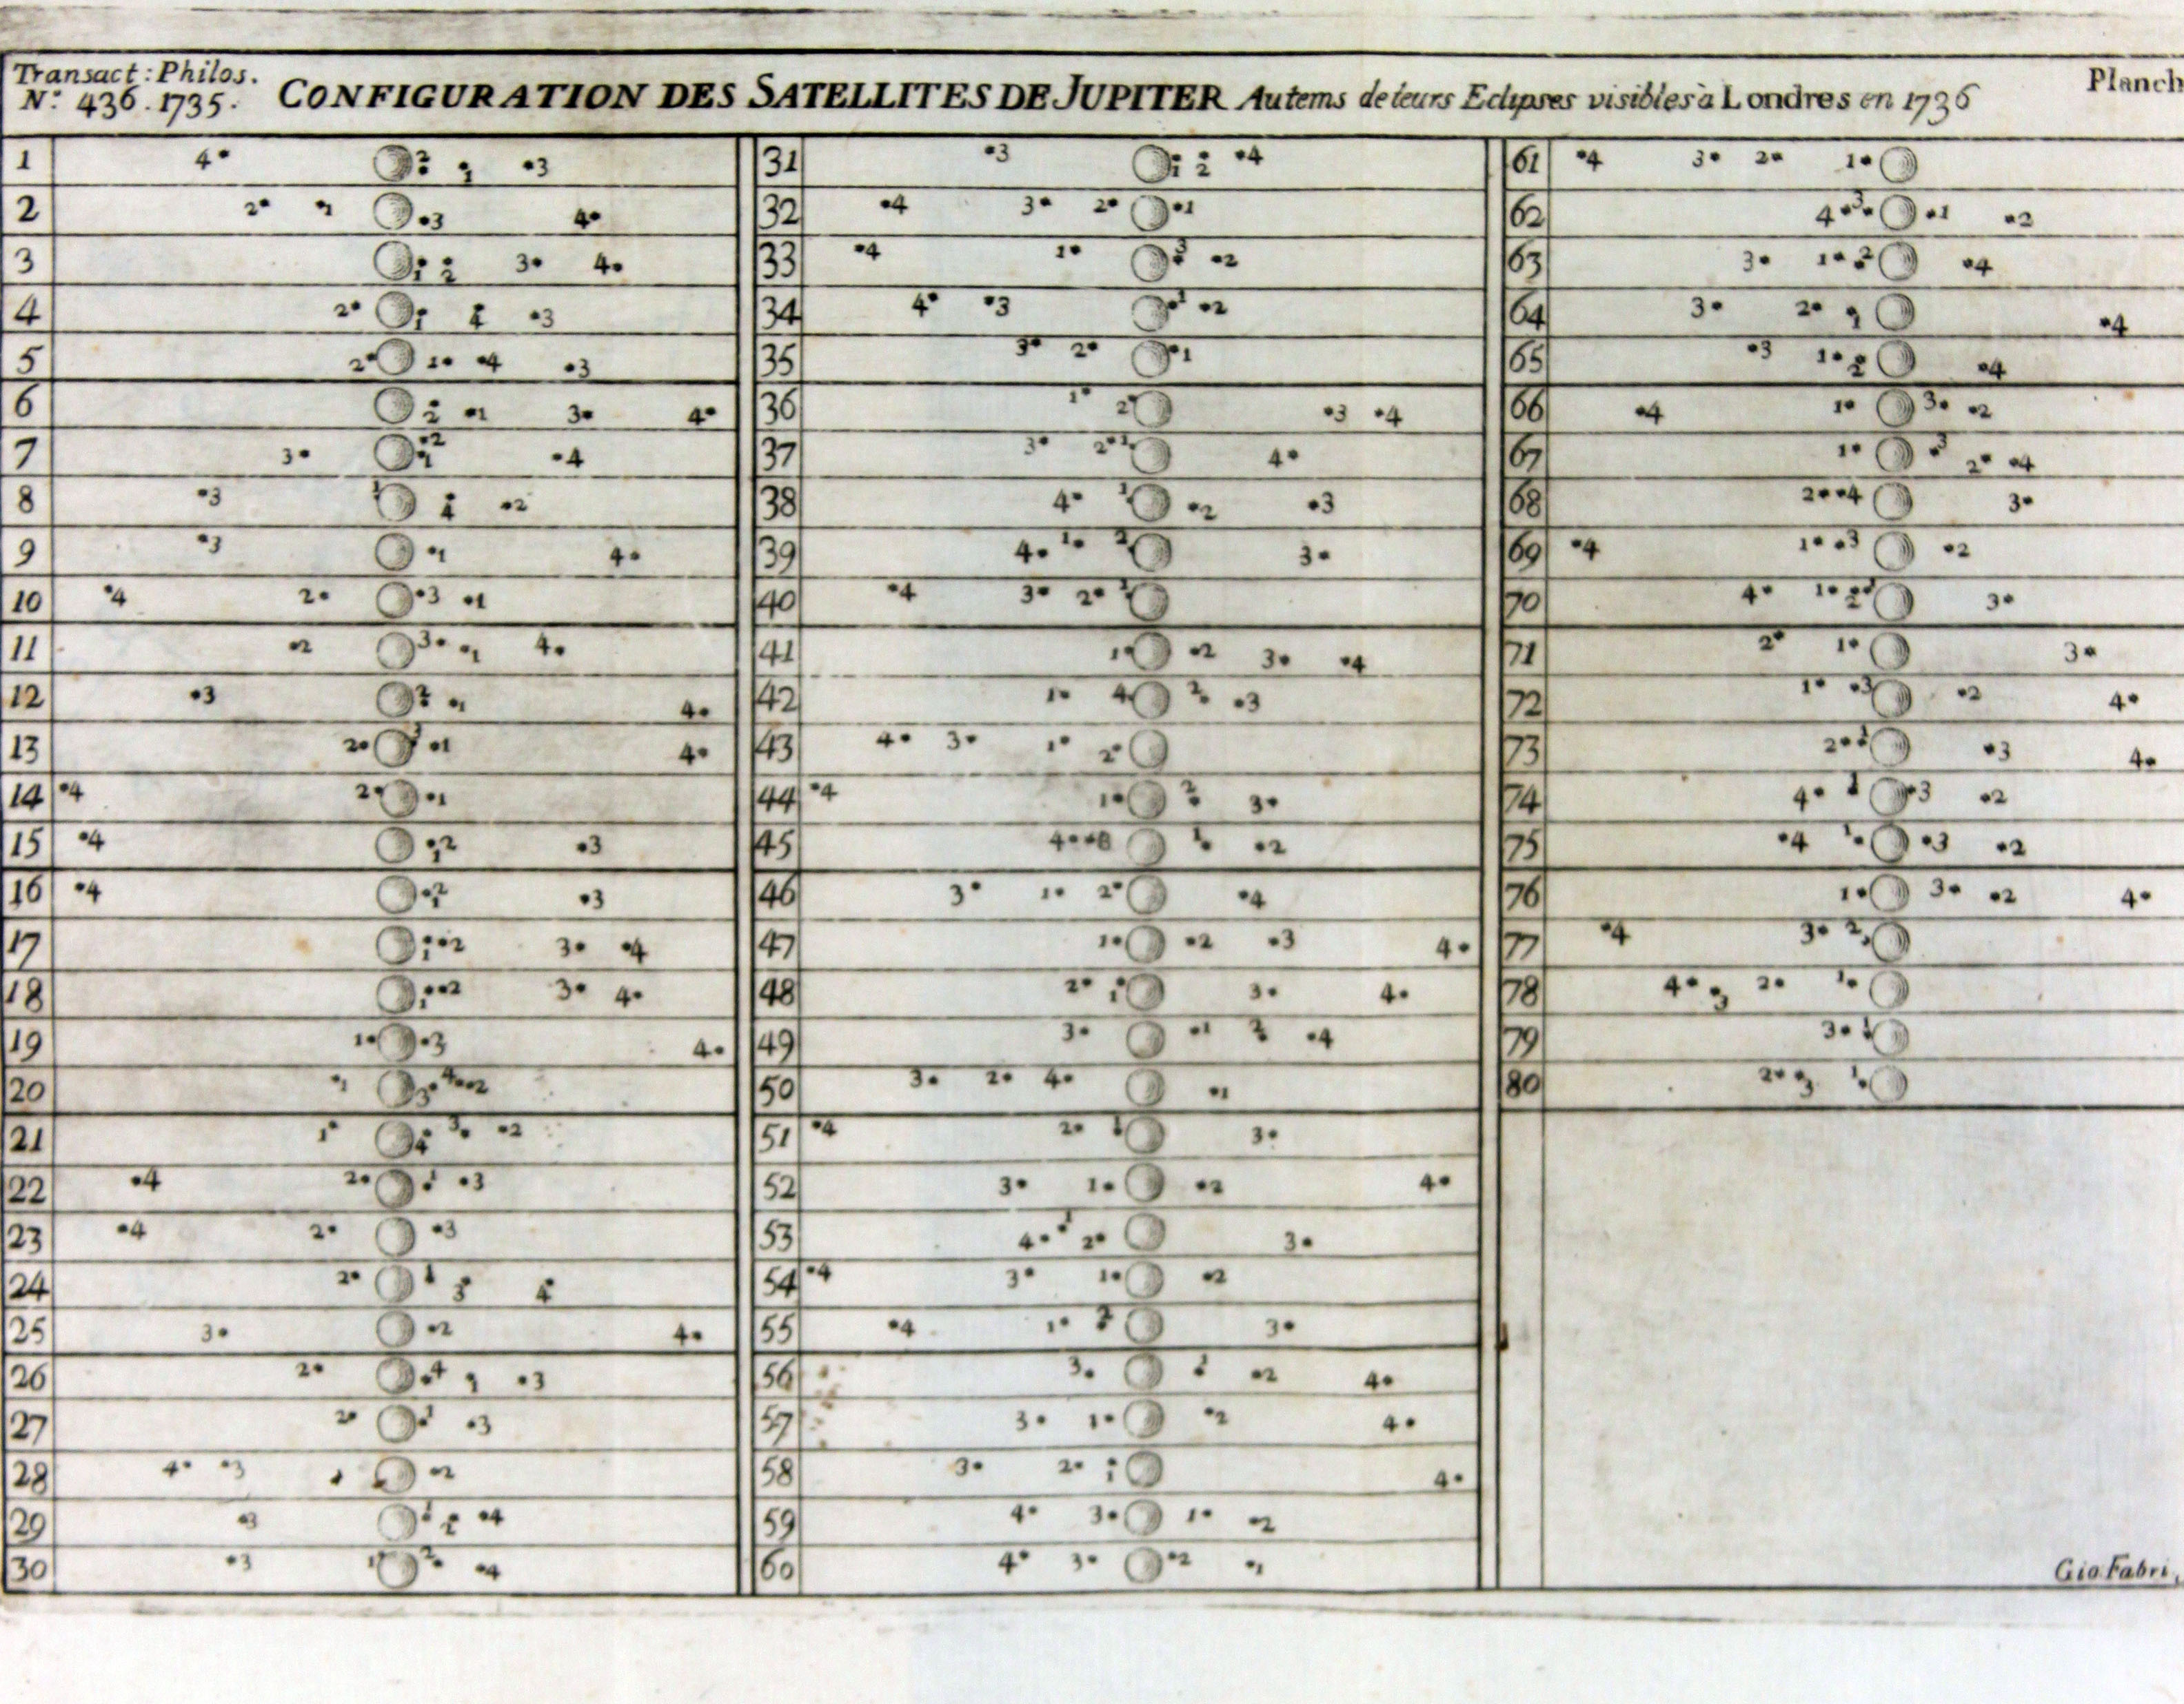 Transact: Philos.
N.° 436. 1735.
CONFIGURATION DES SATELLITES DE JUPITER Au tems de leurs Eclipses visibles à Londres en 1736
Planch
1 4 2 1 3
2 2 1 3 4
3 1 2 3 4
4 2 1 4 3
5 2 1 4 3
6 2 1 3 4
7 3 2 1 4
8 3 1 4 2
9 3 1 4
10 4 2 3 1
11 2 3 1 4
12 3 2 1 4
13 2 3 1 4
14 4 2 1
15 4 1 2 3
16 4 1 2 3
17 1 2 3 4
18 1 2 3 4
19 1 3 4
20 1 3 4 2
21 1 4 3 2
22 4 2 1 3
23 4 2 3
24 2 1 3 4
25 3 2 4
26 2 4 1 3
27 2 1 3
28 4 3 2
29 3 1 2 4
30 3 1 2 4
31 3 1 2 4
32 4 3 2 1
33 4 1 3 2
34 4 3 1 2
35 3 2 1
36 1 2 3 4
37 3 2 1 4
38 4 1 2 3
39 4 1 2 3
40 4 3 2 1
41 1 2 3 4
42 1 4 2 3
43 4 3 1 2
44 4 1 2 3
45 4 1 2
46 3 1 2 4
47 1 2 3 4
48 2 1 3 4
49 3 1 2 4
50 3 2 4 1
51 4 2 1 3
52 3 1 2 4
53 4 1 2 3
54 4 3 1 2
55 4 1 2 3
56 3 1 2 4
57 3 1 2 4
58 3 2 1 4
59 4 3 1 2
60 4 3 2 1
61 4 3 2 1
62 4 3 1 2
63 3 1 2 4
64 3 2 1 4
65 3 1 2 4
66 4 1 3 2
67 1 3 2 4
68 2 4 3
69 4 1 3 2
70 4 1 2 3
71 2 1 3
72 1 3 2 4
73 2 1 3 4
74 4 1 3 2
75 4 1 3 2
76 1 3 2 4
77 4 3 2
78 4 3 2 1
79 3 1
80 2 3 1
Gio. Fabri,